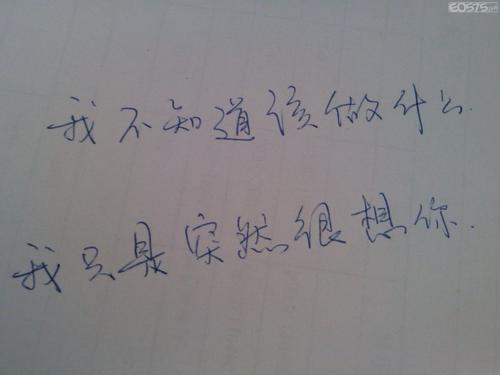 EOS75.com
我不知道该做什么.
我只是突然很想你.